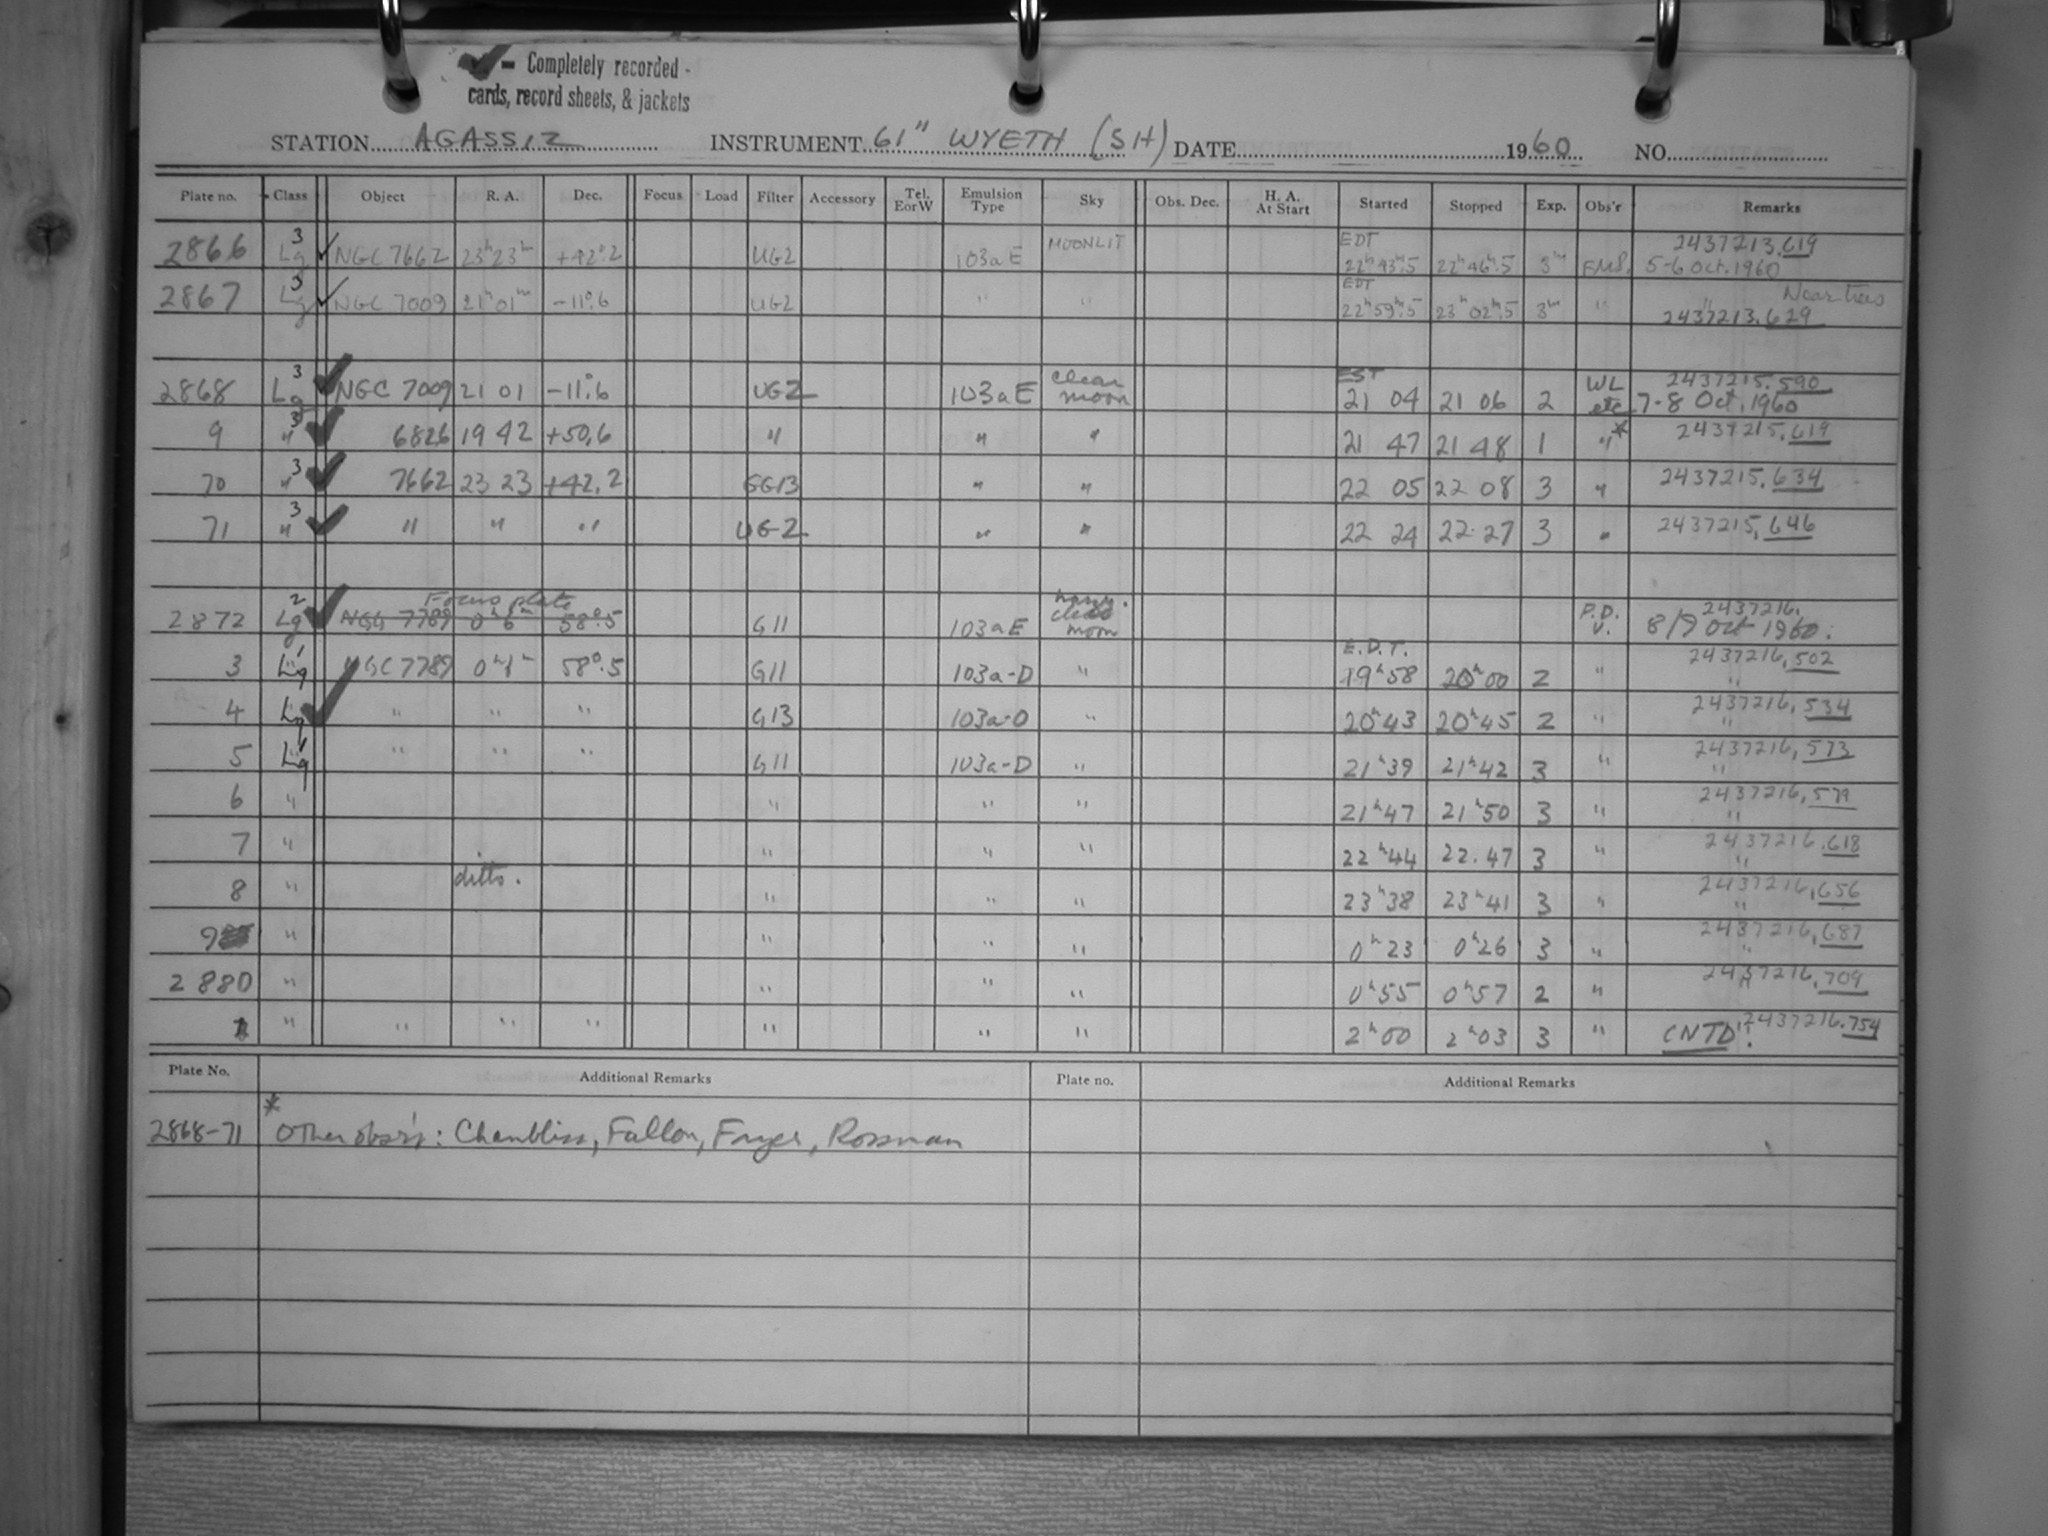 ✓ - Completely recorded -
cards, record sheets, & jackets
STATION AGASSIZ INSTRUMENT 61" WYETH (SH) DATE 1960 NO.
Plate no. Class Object R. A. Dec. Focus Load Filter Accessory Tel. E or W Emulsion Type Sky Obs. Dec. H. A. At Start Started Stopped Exp. Obs'r Remarks
2866 Lg 3 ✓ NGC 7662 23h23m +42°.2 UG2 103aE MOONLIT EDT 22h43m.5 22h46m.5 3m 2437213.619 5-6 Oct. 1960
2867 Lg 3 ✓ NGC 7009 21h01m -11°.6 UG2 " " EDT 22h59m.5 23h02m.5 3m " " Near trees 2437213.629
2868 Lg 3 ✓ NGC 7009 21 01 -11°.6 UG2 103aE clear moon EST 21 04 21 06 2 WL etc 2437215.590 7-8 Oct. 1960
9 " 3 ✓ 6826 19 42 +50.6 " " " 21 47 21 48 1 " * 2437215.619
70 " 3 ✓ 7662 23 23 +42.2 GG13 " " 22 05 22 08 3 " 2437215.634
71 " 3 ✓ " " " UG2 " " 22 24 22 27 3 " 2437215.646
2872 Lg 2 ✓ Focus plate NGC 7789 58°.5 G11 103aE clear moon P.D.V. 2437216. 8/9 Oct 1960.
3 Lg 1 NGC 7789 58°.5 G11 103a-D " E.D.T. 19h58 20h00 2 " 2437216.502 "
4 Lg ✓ " " " G13 103a-O " 20h43 20h45 2 " 2437216.534 "
5 Lg 1 " " " G11 103a-D " 21h39 21h42 3 " 2437216.573 "
6 " " " " 21h47 21h50 3 " 2437216.579 "
7 " " " " 22h44 22.47 3 " 2437216.618 "
8 " ditto. " " " 23h38 23h41 3 " 2437216.656 "
9 " " " " 0h23 0h26 3 " 2437216.687 "
2880 " " " " 0h55 0h57 2 " 2437216.709 "
1 " " " " " " " 2h00 2h03 3 " CNTD. " 2437216.754
Plate No. Additional Remarks Plate no. Additional Remarks
2868-71 * Other obs'rs: Chambliss, Fallon, Rossman